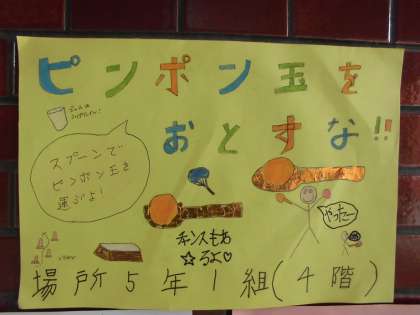 ピンポン玉を
おとすな!!
スプーンで
ピンポン玉を
運ぶよ!
やったー
チャンスもあ
☆るよ♡
場所5年1組(4階)